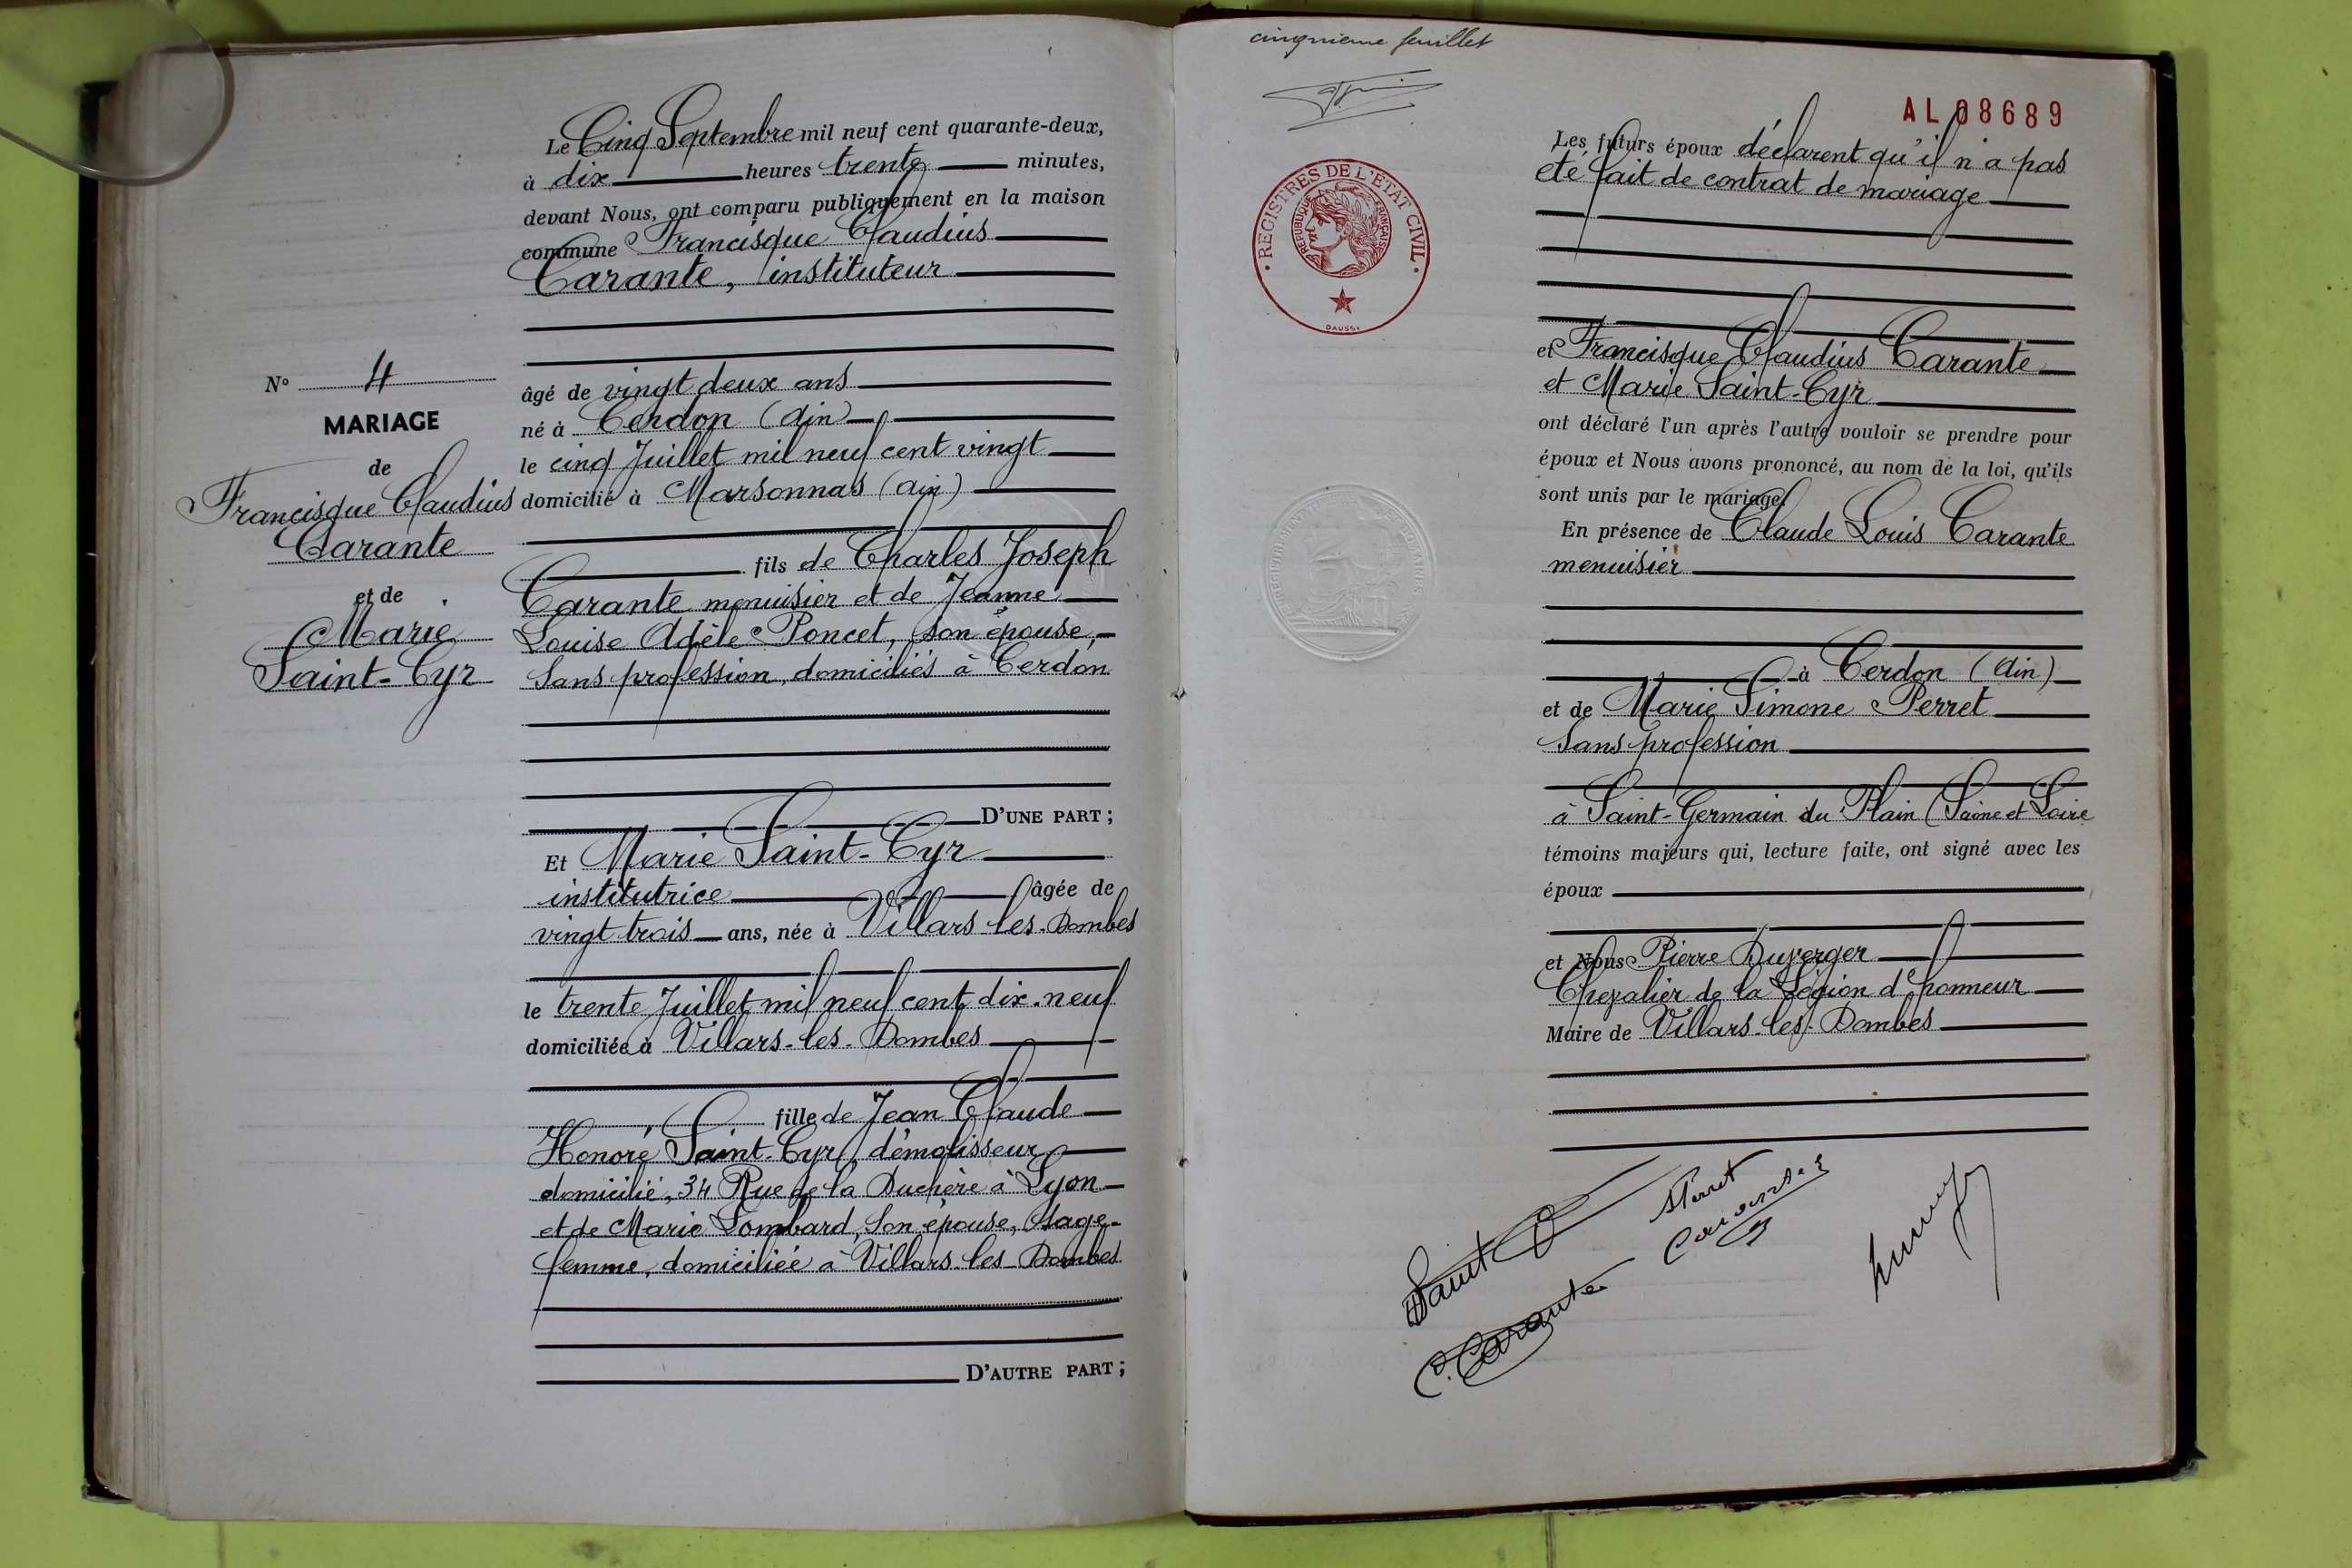 Le Cinq Septembre mil neuf cent quarante-deux,
à dix heures trente minutes,
devant Nous, ont comparu publiquement en la maison
commune Francisque Claudius
Carante, instituteur
N° 4
MARIAGE
de
Francisque Claudius
Carante
et de
Marie
Saint-Cyr
âgé de vingt deux ans
né à Cerdon (Ain)
le cinq Juillet mil neuf cent vingt
domicilié à Marsonnas (Ain)
fils de Charles Joseph
Carante menuisier et de Jeanne
Louise Adèle Poncet, son épouse,
sans profession, domiciliés à Cerdon
D'UNE PART ;
Et Marie Saint-Cyr
institutrice âgée de
vingt trois ans, née à Villars-les-Dombes
le trente Juillet mil neuf cent dix-neuf
domiciliée à Villars-les-Dombes
fille de Jean Claude
Honoré Saint-Cyr, démolisseur
domicilié, 34 Rue de la Duchère à Lyon
et de Marie Lombard, son épouse, sage-
femme, domiciliée à Villars-les-Dombes
D'AUTRE PART ;
cinquième feuillet
AL 08689
REGISTRES DE L'ÉTAT CIVIL
RÉPUBLIQUE FRANÇAISE
DAUSSY
Les futurs époux déclarent qu'il n'a pas
été fait de contrat de mariage
et Francisque Claudius Carante
et Marie Saint-Cyr
ont déclaré l'un après l'autre vouloir se prendre pour
époux et Nous avons prononcé, au nom de la loi, qu'ils
sont unis par le mariage.
En présence de Claude Louis Carante
menuisier
à Cerdon (Ain)
et de Marie Simone Perret
sans profession
à Saint-Germain du Plain (Saône et Loire
témoins majeurs qui, lecture faite, ont signé avec les
époux
et Nous Pierre Duverger
Chevalier de la Légion d'honneur
Maire de Villars-les-Dombes
Saint
Perret
Carante
C. Carante